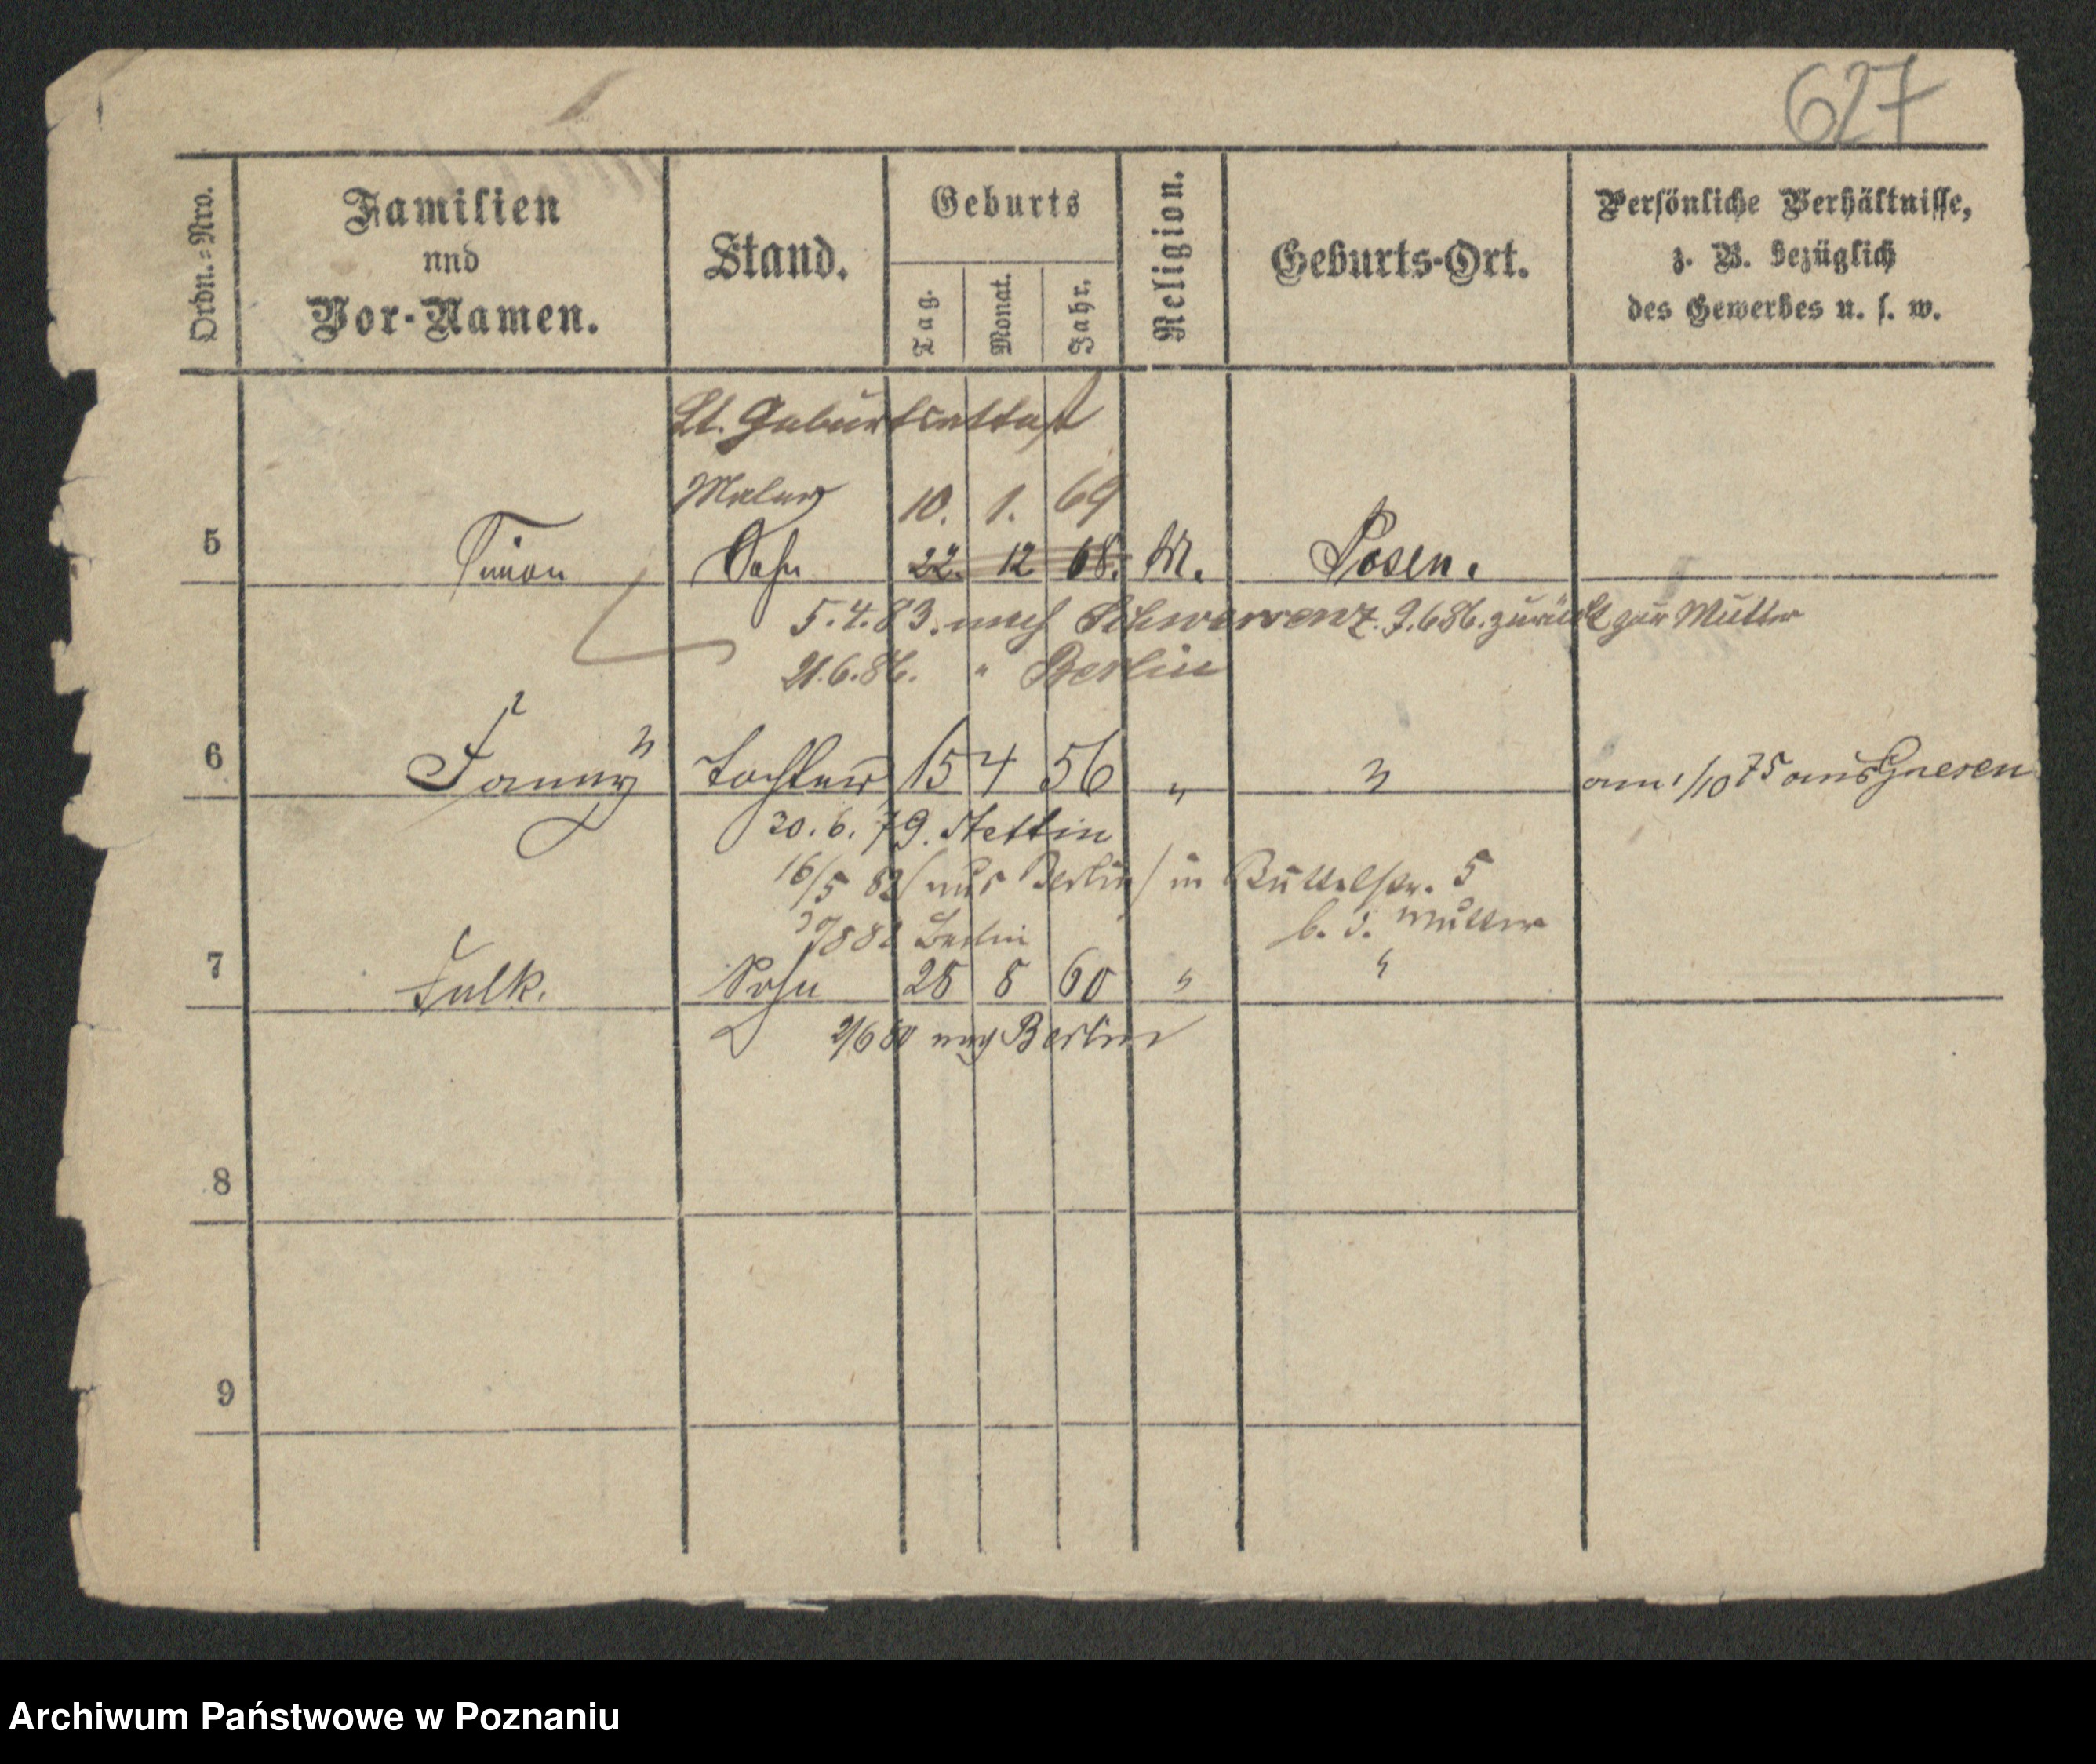 627
Ordn.=Nro.
Familien
und
Vor-Namen.
Stand.
Geburts
Tag.
Monat.
Jahr.
Religion.
Geburts-Ort.
Persönliche Verhältnisse,
z. B. bezüglich
des Gewerbes u. s. w.
Lt. Geburtsattest
Maler 10. 1. 69
5 Simon Sohn 22. 12 68. M. Posen.
5.4.83. nach Schwersenz. 9.6 86. zurück zur Mutter
21.6.86. " Berlin
6 Fanny Tochter 15 4 56 " " am 1/10 75 aus Gnesen
20. 6. 79. Stettin
16/5 82 (aus Berlin) in Büttelstr. 5
b. d. Mutter
Berlin
7 Falk. Sohn 28 8 60 " "
2/6 80 nach Berlin
8
9
Archiwum Państwowe w Poznaniu